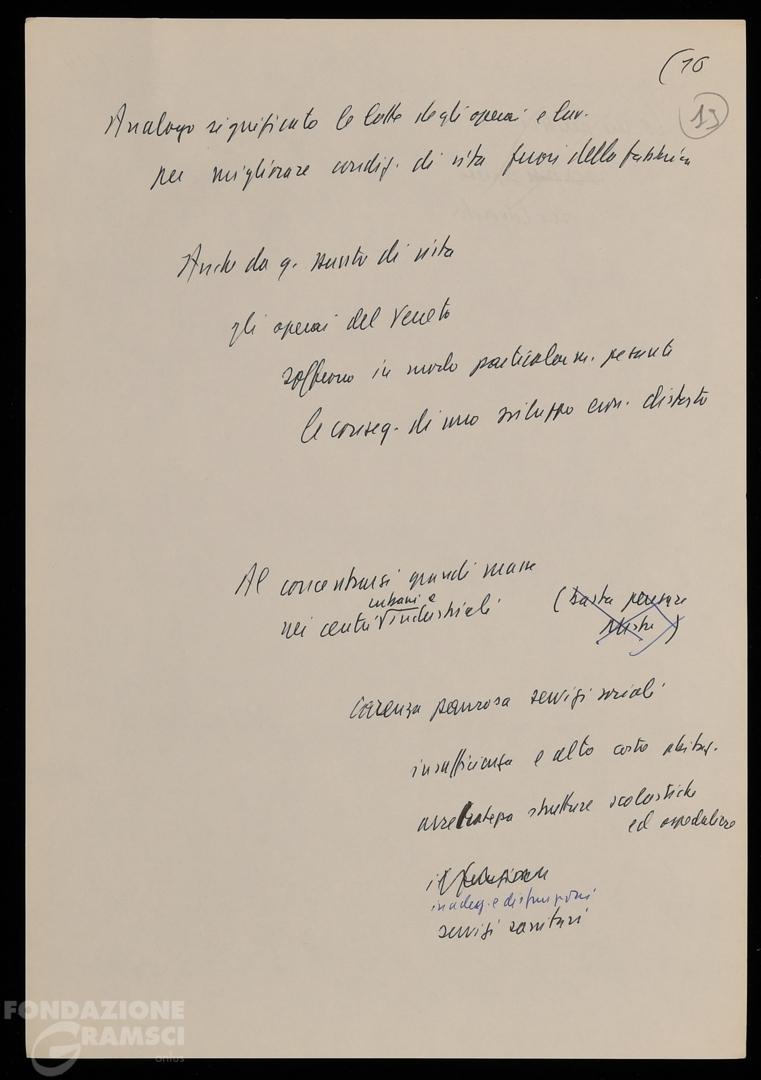 (10
13
Analogo significato le lotte degli operai e lav.
per migliorare condiz. di vita fuori della fabbrica
Anche da q. punto di vista
gli operai del Veneto
soffrono in modo particolarm. pesante
le conseg. di uno sviluppo econ. distorto
Al concentrarsi grandi masse
urbani e
nei centri industriali
(basta pensare
Mestre)
carenza paurosa servizi sociali
insufficienza e alto costo abitaz.
arretratezza strutture scolastiche
ed ospedaliere
inadeg. e disfunzioni
servizi sanitari
FONDAZIONE
GRAMSCI
onlus